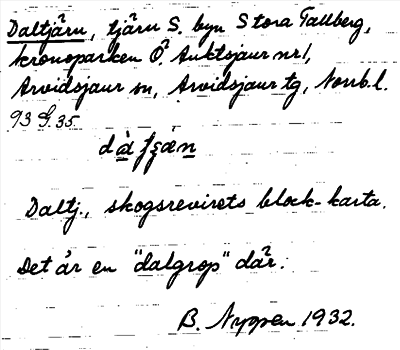 Daltjärn, tjärn S. byn Stora Tallberg,
kronoparken Ö. Auktsjaur nr 1,
Arvidsjaur sn, Arvidsjaur tg, Norrb. l.
93 G. 35.
Daltj., skogsrevirets block-karta.
Det är en "dalgrop" där.
B. Nyppen 1932.